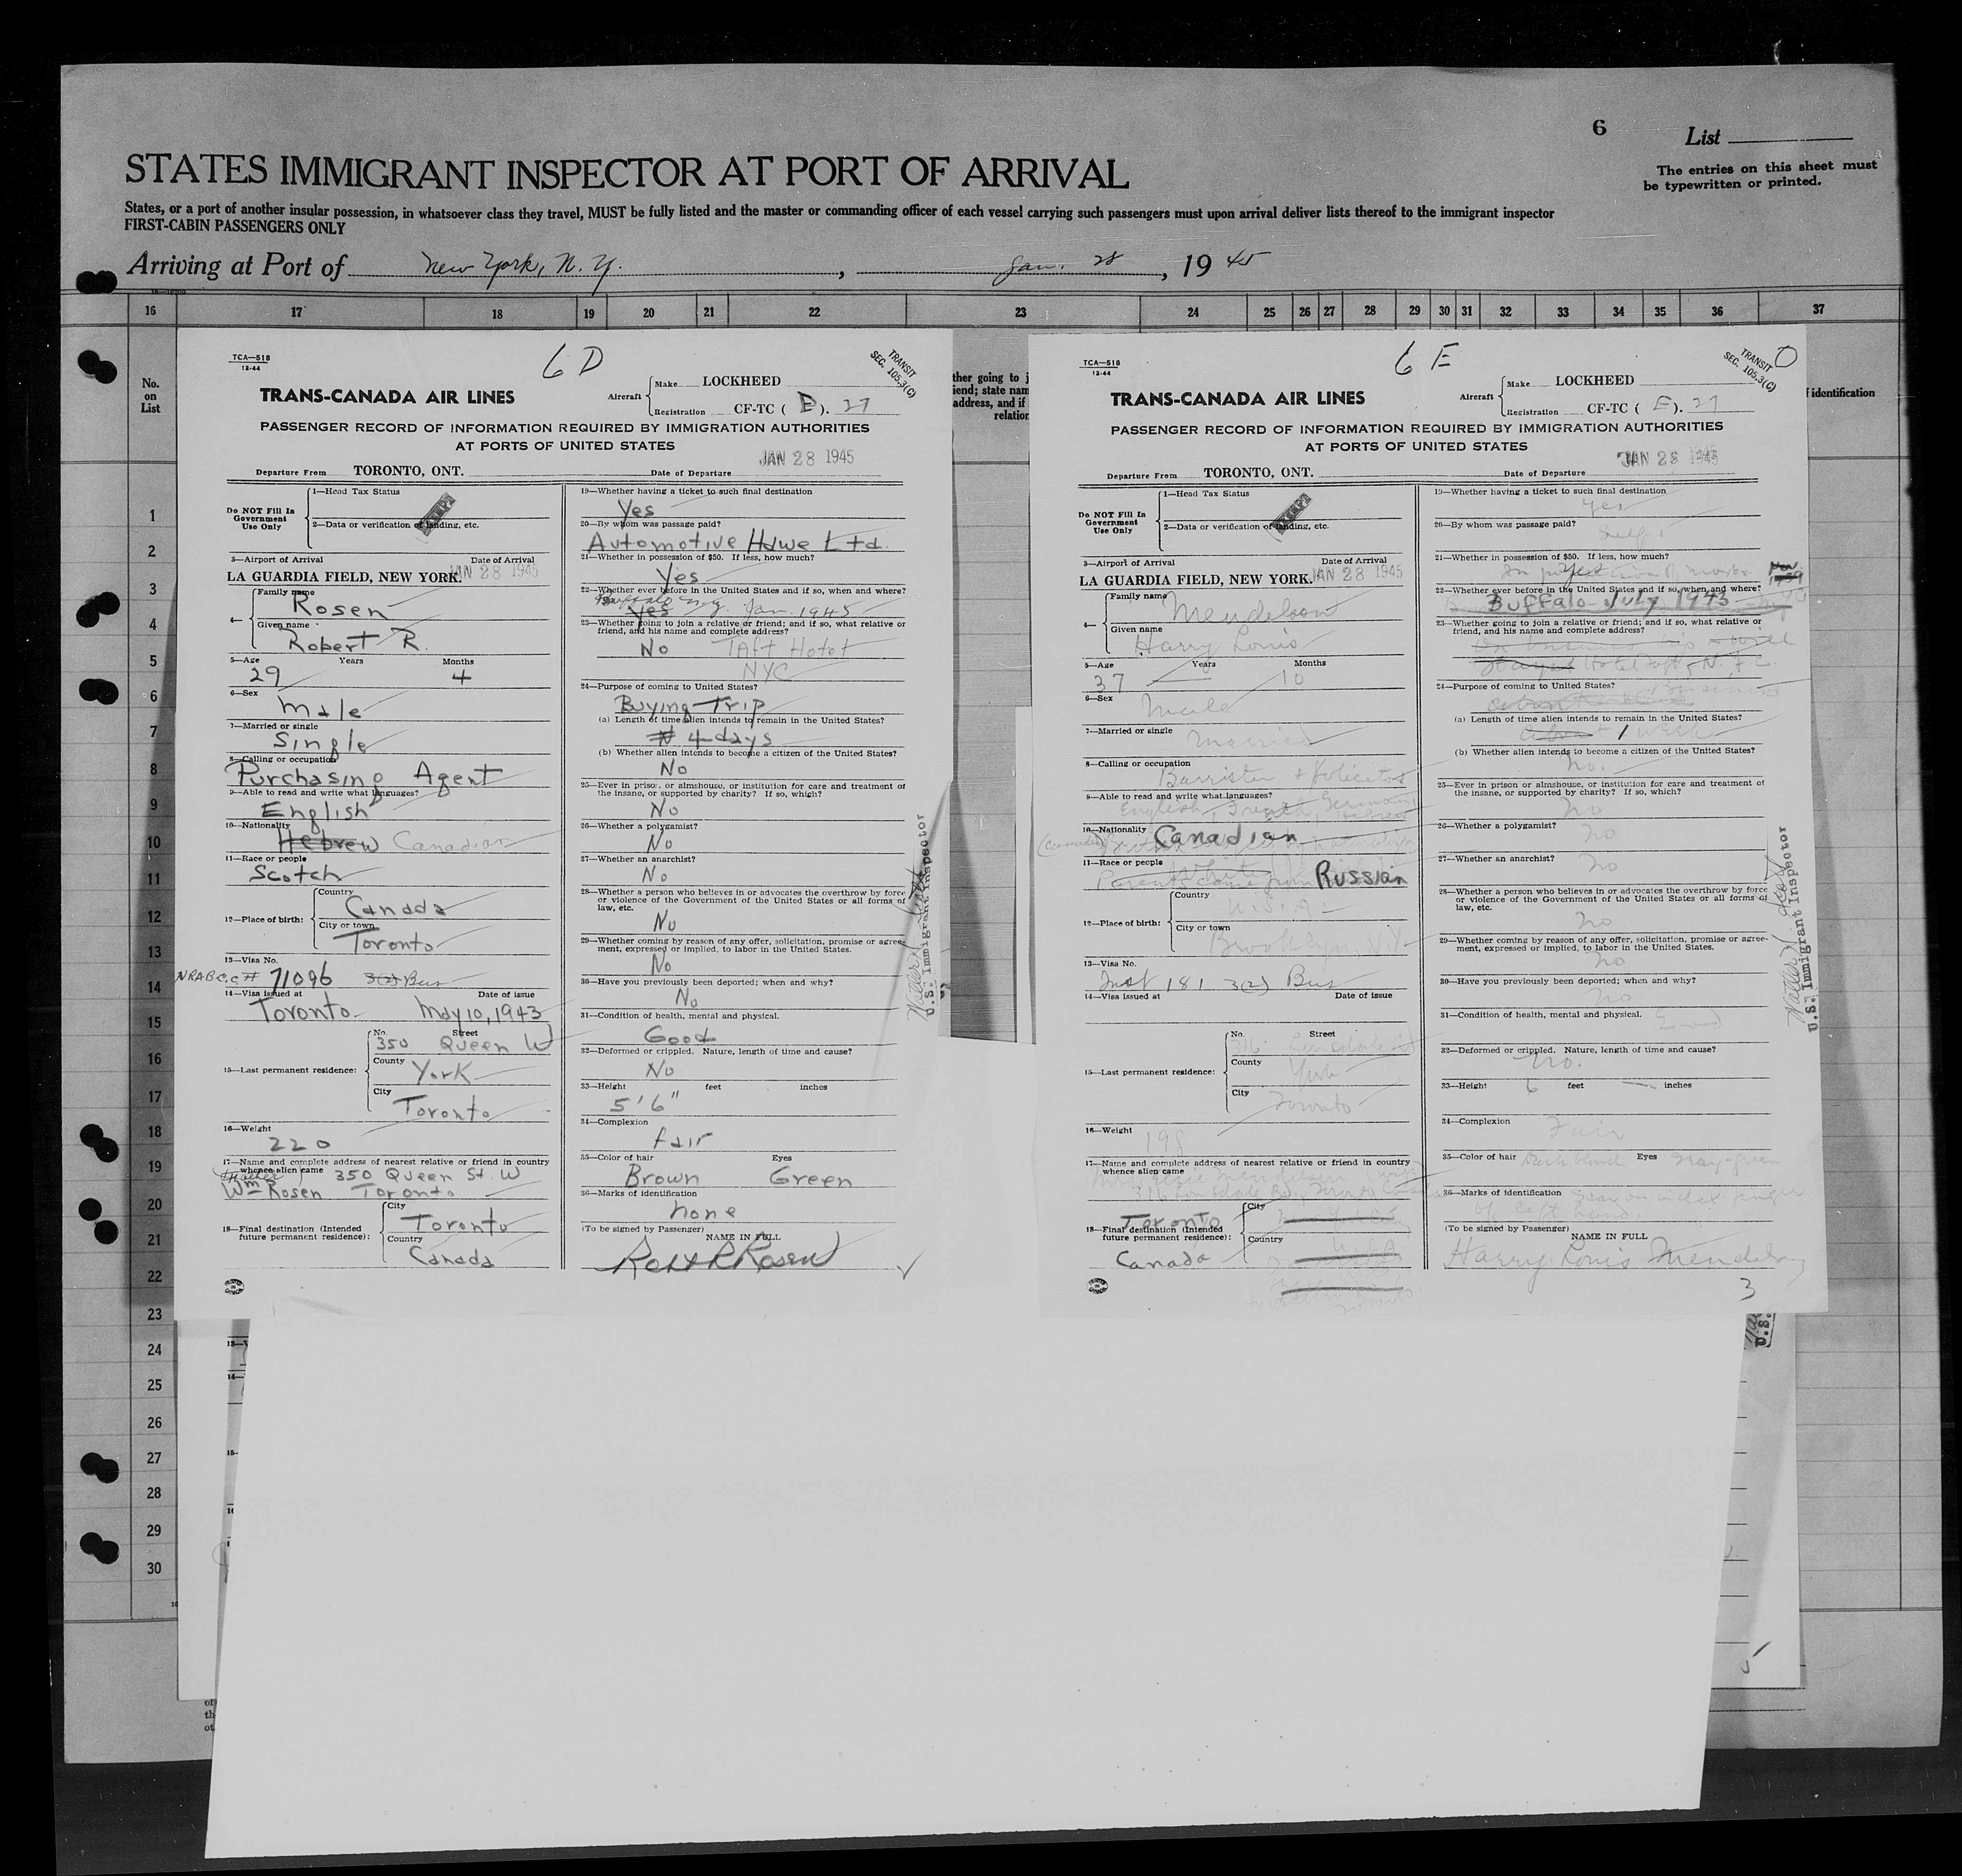 6
List
The entries on this sheet must
be typewritten or printed.
STATES IMMIGRANT INSPECTOR AT PORT OF ARRIVAL
States, or a port of another insular possession, in whatsoever class they travel, MUST be fully listed and the master or commanding officer of each vessel carrying such passengers must upon arrival deliver lists thereof to the immigrant inspector
FIRST-CABIN PASSENGERS ONLY
Arriving at Port of New York, N. Y., Jan. 28, 1945
16 17 18 19 20 21 22 23 24 25 26 27 28 29 30 31 32 33 34 35 36 37
No.
on
List
ther going to j
iend; state nam
address, and if
relation
f identification
1
2
3
4
5
6
7
8
9
10
11
12
13
14
15
16
17
18
19
20
21
22
23
24
25
26
27
28
29
30
TCA—518
12-44
6 D
TRANSIT
SEC. 105.3(C)
TRANS-CANADA AIR LINES
Aircraft
Make LOCKHEED
Registration CF-TC ( E ). 27
PASSENGER RECORD OF INFORMATION REQUIRED BY IMMIGRATION AUTHORITIES
AT PORTS OF UNITED STATES
Departure From TORONTO, ONT. Date of Departure JAN 28 1945
Do NOT Fill In
Government
Use Only
1—Head Tax Status
2—Data or verification of landing, etc.
3—Airport of Arrival Date of Arrival
LA GUARDIA FIELD, NEW YORK. JAN 28 1945
4—
Family name
Rosen
Given name
Robert R.
5—Age Years Months
29 4
6—Sex
Male
7—Married or single
Single
8—Calling or occupation
Purchasing Agent
9—Able to read and write what languages?
English
10—Nationality
Hebrew Canadian
11—Race or people
Scotch
12—Place of birth:
Country
Canada
City or town
Toronto
13—Visa No.
NRABCC # 71096 3(2) Bus
14—Visa issued at Date of issue
Toronto May 10, 1943
15—Last permanent residence:
No. Street
350 Queen W
County
York
City
Toronto
16—Weight
220
17—Name and complete address of nearest relative or friend in country
whence alien came
(Father) 350 Queen St. W
Wm Rosen Toronto
18—Final destination (Intended
future permanent residence):
City
Toronto
Country
Canada
19—Whether having a ticket to such final destination
Yes
20—By whom was passage paid?
Automotive Hdwe Ltd.
21—Whether in possession of $50. If less, how much?
Yes
22—Whether ever before in the United States and if so, when and where?
Buffalo N.Y. Jan. 1945
Yes
23—Whether going to join a relative or friend; and if so, what relative or
friend, and his name and complete address?
No Taft Hotel
NYC
24—Purpose of coming to United States?
Buying Trip
(a) Length of time alien intends to remain in the United States?
4 days
(b) Whether alien intends to become a citizen of the United States?
No
25—Ever in prison, or almshouse, or institution for care and treatment of
the insane, or supported by charity? If so, which?
No
26—Whether a polygamist?
No
27—Whether an anarchist?
No
28—Whether a person who believes in or advocates the overthrow by force
or violence of the Government of the United States or all forms of
law, etc.
No
29—Whether coming by reason of any offer, solicitation, promise or agree-
ment, expressed or implied, to labor in the United States.
No
30—Have you previously been deported; when and why?
No
31—Condition of health, mental and physical.
Good
32—Deformed or crippled. Nature, length of time and cause?
No
33—Height feet inches
5' 6"
34—Complexion
fair
35—Color of hair Eyes
Brown Green
36—Marks of identification
none
(To be signed by Passenger)
NAME IN FULL
Robt R Rosen
U.S. Immigrant Inspector
TCA—518
12-44
6 E
TRANSIT
SEC. 105.3(C)
TRANS-CANADA AIR LINES
Aircraft
Make LOCKHEED
Registration CF-TC ( E ). 27
PASSENGER RECORD OF INFORMATION REQUIRED BY IMMIGRATION AUTHORITIES
AT PORTS OF UNITED STATES
Departure From TORONTO, ONT. Date of Departure JAN 28 1945
Do NOT Fill In
Government
Use Only
1—Head Tax Status
2—Data or verification of landing, etc.
3—Airport of Arrival Date of Arrival
LA GUARDIA FIELD, NEW YORK. JAN 28 1945
4—
Family name
Mendelson
Given name
Harry Louis
5—Age Years Months
37 10
6—Sex
Male
7—Married or single
Married
8—Calling or occupation
Barrister & Solicitor
9—Able to read and write what languages?
English, French, German, Hebrew
10—Nationality
Canadian
11—Race or people
Russian
12—Place of birth:
Country
U.S.A
City or town
Brooklyn N.Y.
13—Visa No.
Inst 181 3(2) Bus
14—Visa issued at Date of issue
15—Last permanent residence:
No. Street
316
County
York
City
Toronto
16—Weight
198
17—Name and complete address of nearest relative or friend in country
whence alien came
18—Final destination (Intended
future permanent residence):
City
Toronto
Country
Canada
19—Whether having a ticket to such final destination
Yes
20—By whom was passage paid?
Self
21—Whether in possession of $50. If less, how much?
Yes
22—Whether ever before in the United States and if so, when and where?
Buffalo July 1943
23—Whether going to join a relative or friend; and if so, what relative or
friend, and his name and complete address?
Hotel Taft, N.Y.C.
24—Purpose of coming to United States?
Business
(a) Length of time alien intends to remain in the United States?
about 1 week
(b) Whether alien intends to become a citizen of the United States?
no.
25—Ever in prison or almshouse, or institution for care and treatment of
the insane, or supported by charity? If so, which?
no
26—Whether a polygamist?
no
27—Whether an anarchist?
no
28—Whether a person who believes in or advocates the overthrow by force
or violence of the Government of the United States or all forms of
law, etc.
no
29—Whether coming by reason of any offer, solicitation, promise or agree-
ment, expressed or implied, to labor in the United States.
no
30—Have you previously been deported; when and why?
no
31—Condition of health, mental and physical.
Good
32—Deformed or crippled. Nature, length of time and cause?
no.
33—Height 6 feet — inches
34—Complexion
Fair
35—Color of hair Dark blond Eyes gray-green
36—Marks of identification scar on index finger
of left hand
(To be signed by Passenger)
NAME IN FULL
Harry Louis Mendelson
3
U.S. Immigrant Inspector